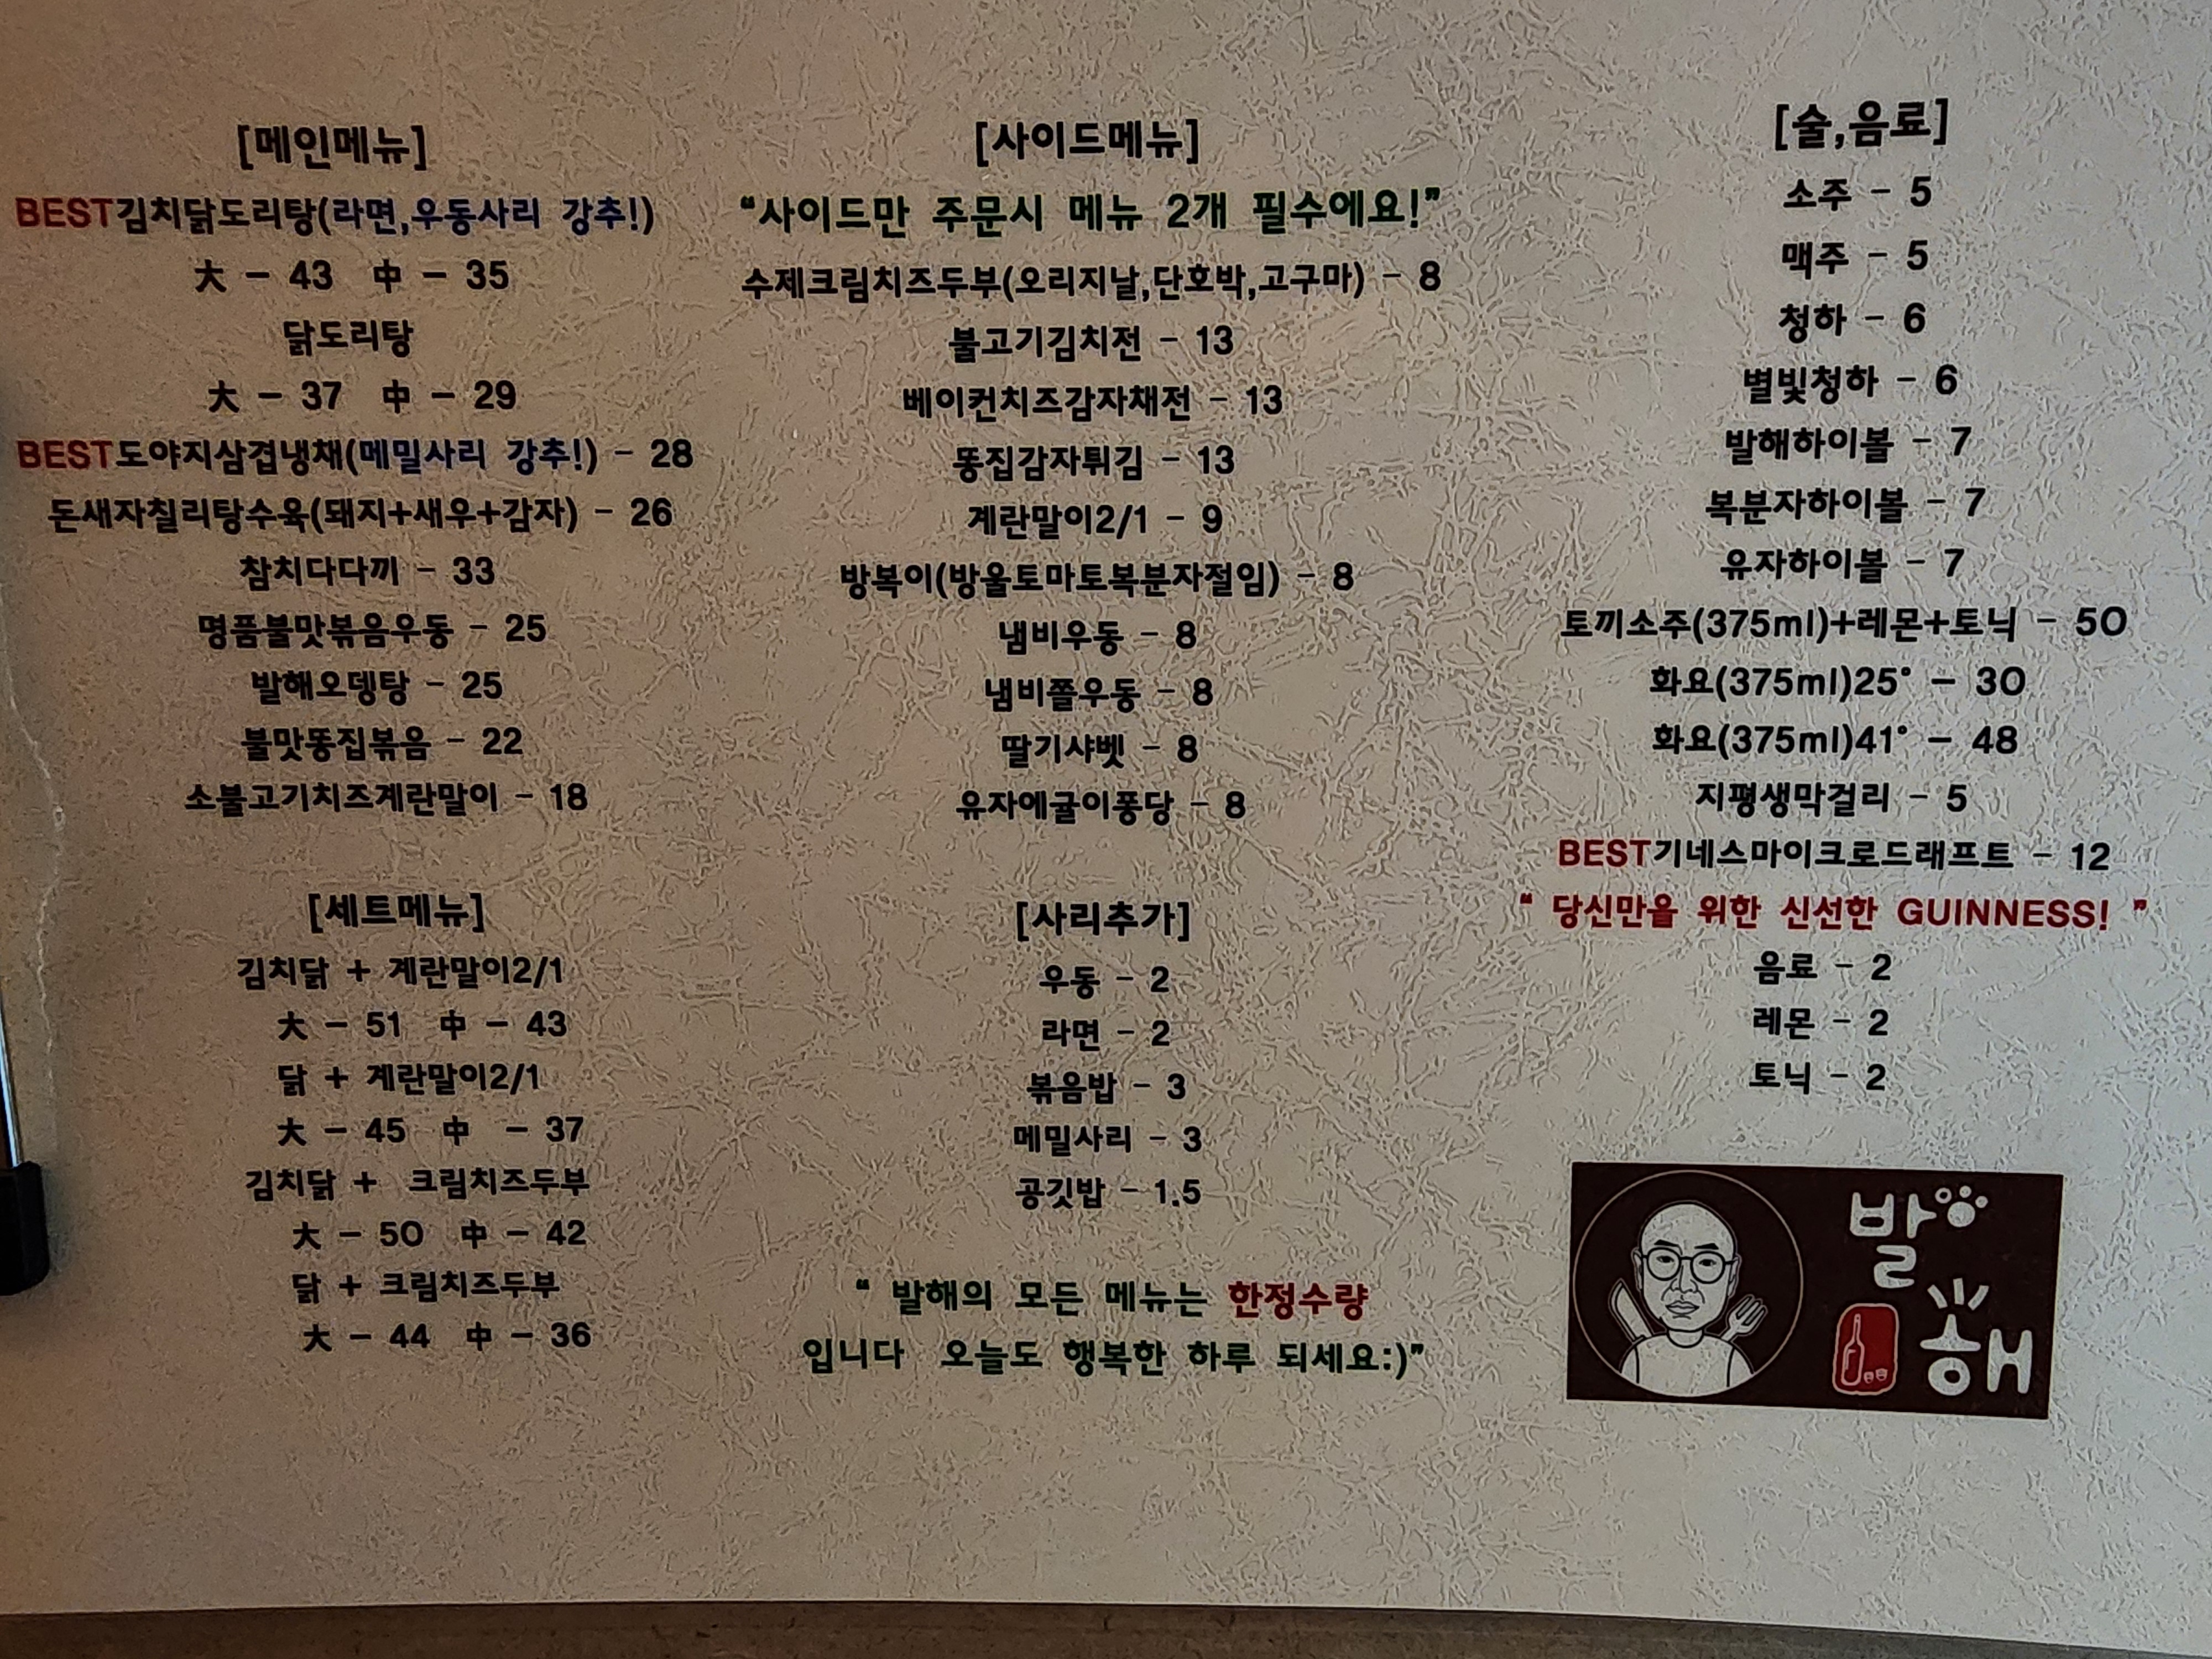 [메인메뉴]
BEST김치닭도리탕(라면,우동사리 강추!)
大 - 43 中 - 35
닭도리탕
大 - 37 中 - 29
BEST도야지삼겹냉채(메밀사리 강추!) - 28
돈새자칠리탕수육(돼지+새우+감자) - 26
참치다다끼 - 33
명품불맛볶음우동 - 25
발해오뎅탕 - 25
불맛똥집볶음 - 22
소불고기치즈계란말이 - 18
[세트메뉴]
김치닭 + 계란말이2/1
大 - 51 中 - 43
닭 + 계란말이2/1
大 - 45 中 - 37
김치닭 + 크림치즈두부
大 - 50 中 - 42
닭 + 크림치즈두부
大 - 44 中 - 36
[사이드메뉴]
“사이드만 주문시 메뉴 2개 필수에요!”
수제크림치즈두부(오리지날,단호박,고구마) - 8
불고기김치전 - 13
베이컨치즈감자채전 - 13
똥집감자튀김 - 13
계란말이2/1 - 9
방복이(방울토마토복분자절임) - 8
냄비우동 - 8
냄비쫄우동 - 8
딸기샤벳 - 8
유자에귤이퐁당 - 8
[사리추가]
우동 - 2
라면 - 2
볶음밥 - 3
메밀사리 - 3
공깃밥 - 1.5
“ 발해의 모든 메뉴는 한정수량
입니다 오늘도 행복한 하루 되세요:)”
[술,음료]
소주 - 5
맥주 - 5
청하 - 6
별빛청하 - 6
발해하이볼 - 7
복분자하이볼 - 7
유자하이볼 - 7
토끼소주(375ml)+레몬+토닉 - 50
화요(375ml)25° - 30
화요(375ml)41° - 48
지평생막걸리 - 5
BEST기네스마이크로드래프트 - 12
“ 당신만을 위한 신선한 GUINNESS! ”
음료 - 2
레몬 - 2
토닉 - 2
발
해